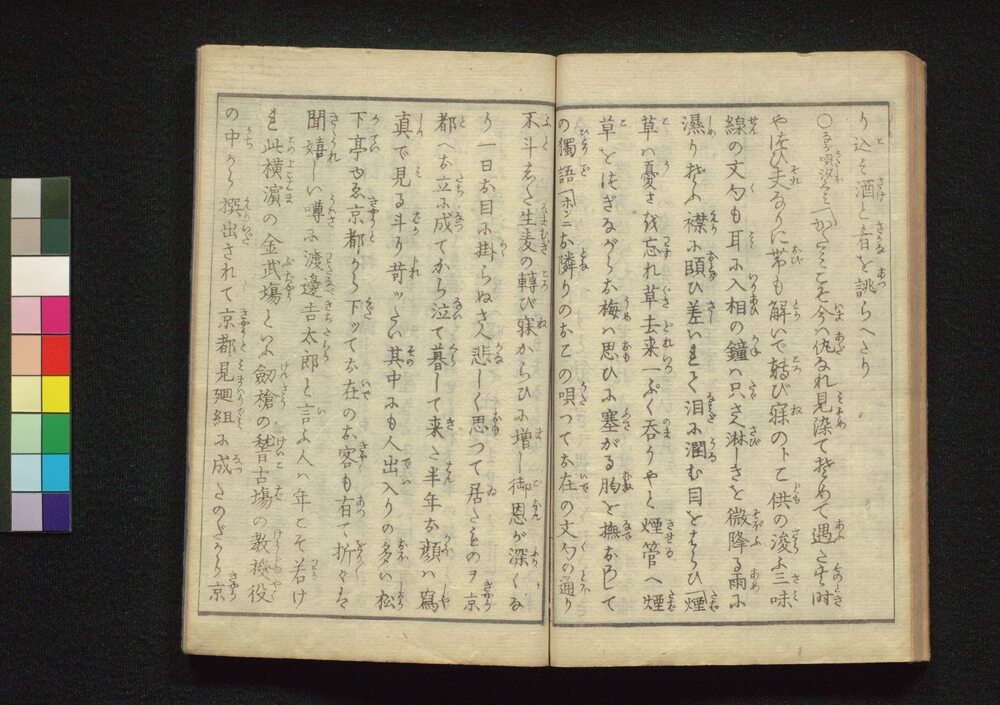 り込て酒と肴を誂らへたり
今ハ仇なれ見染て初めて遇た其時
や結ひ夫なりに帯も解いで轉び寐のト供の浚ふ三味
線の文句も耳に入相の鐘ハ只さへ淋しきを微降る雨に
濕り勝ふ襟に頤ひ差いれて泪に潤む目をはらひ「煙
草ハ憂さを忘れ草去来一ぷく呑うやと煙管へ煙
草をつぎながらお梅ハ思ひに塞がる胸を撫おろして
の獨語「ホンニお隣りのお乙の唄つてお在の文句の通り
不斗した生麦の轉び寐からひに増し御恩が深くな
り一日お目に掛らねさへ悲しく思つて居たものヲ京
都へお立に成てから泣て暮して来た半年お顔ハ寫
真で見る斗り苛ッたい其中にも人出入りの多い松
下亭ゆゑ京都から下ッてお在のお客も有て折々は
聞嬉しい噂に渡邊吉太郎と言ふ人ハ年こそ若け
れ此横濱の金武塲といふ劔槍の稽古塲の教授役
の中から撰出されて京都見廻組に成たのだから京